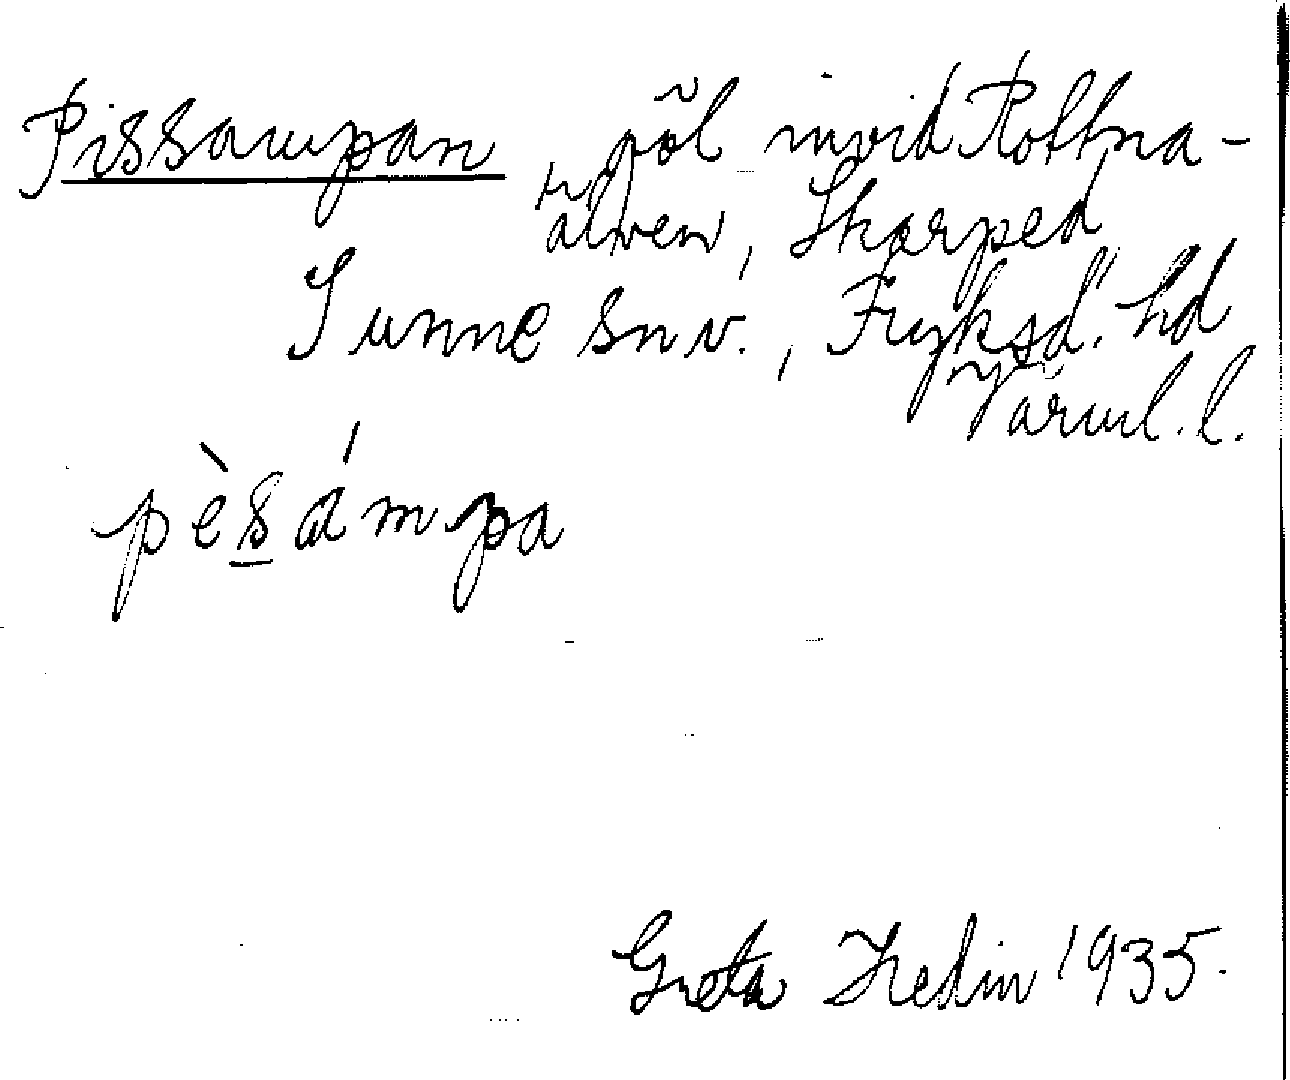 Pissampan, pöl invid Rottna-
älven, Skarped
Sunne sn v., Fryksd. hd
Värml. l.
pèsámpa
Greta Hedin 1935.